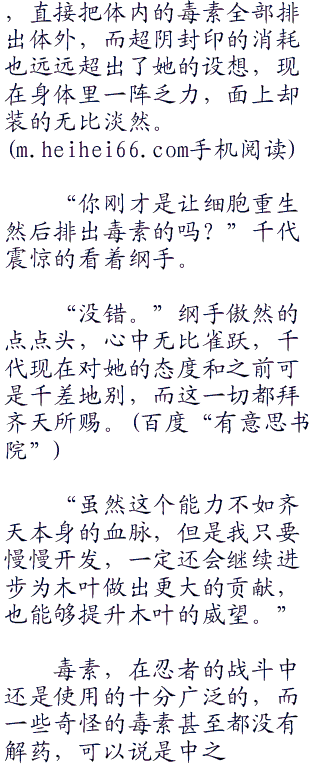 ，直接把体内的毒素全部排
出体外，而超阴封印的消耗
也远远超出了她的设想，现
在身体里一阵乏力，面上却
装的无比淡然。
(m.heihei66.com手机阅读)
“你刚才是让细胞重生
然后排出毒素的吗？”千代
震惊的看着纲手。
“没错。”纲手傲然的
点点头，心中无比雀跃，千
代现在对她的态度和之前可
是千差地别，而这一切都拜
齐天所赐。(百度“有意思书
院”)
“虽然这个能力不如齐
天本身的血脉，但是我只要
慢慢开发，一定还会继续进
步为木叶做出更大的贡献，
也能够提升木叶的威望。”
毒素，在忍者的战斗中
还是使用的十分广泛的，而
一些奇怪的毒素甚至都没有
解药，可以说是中之